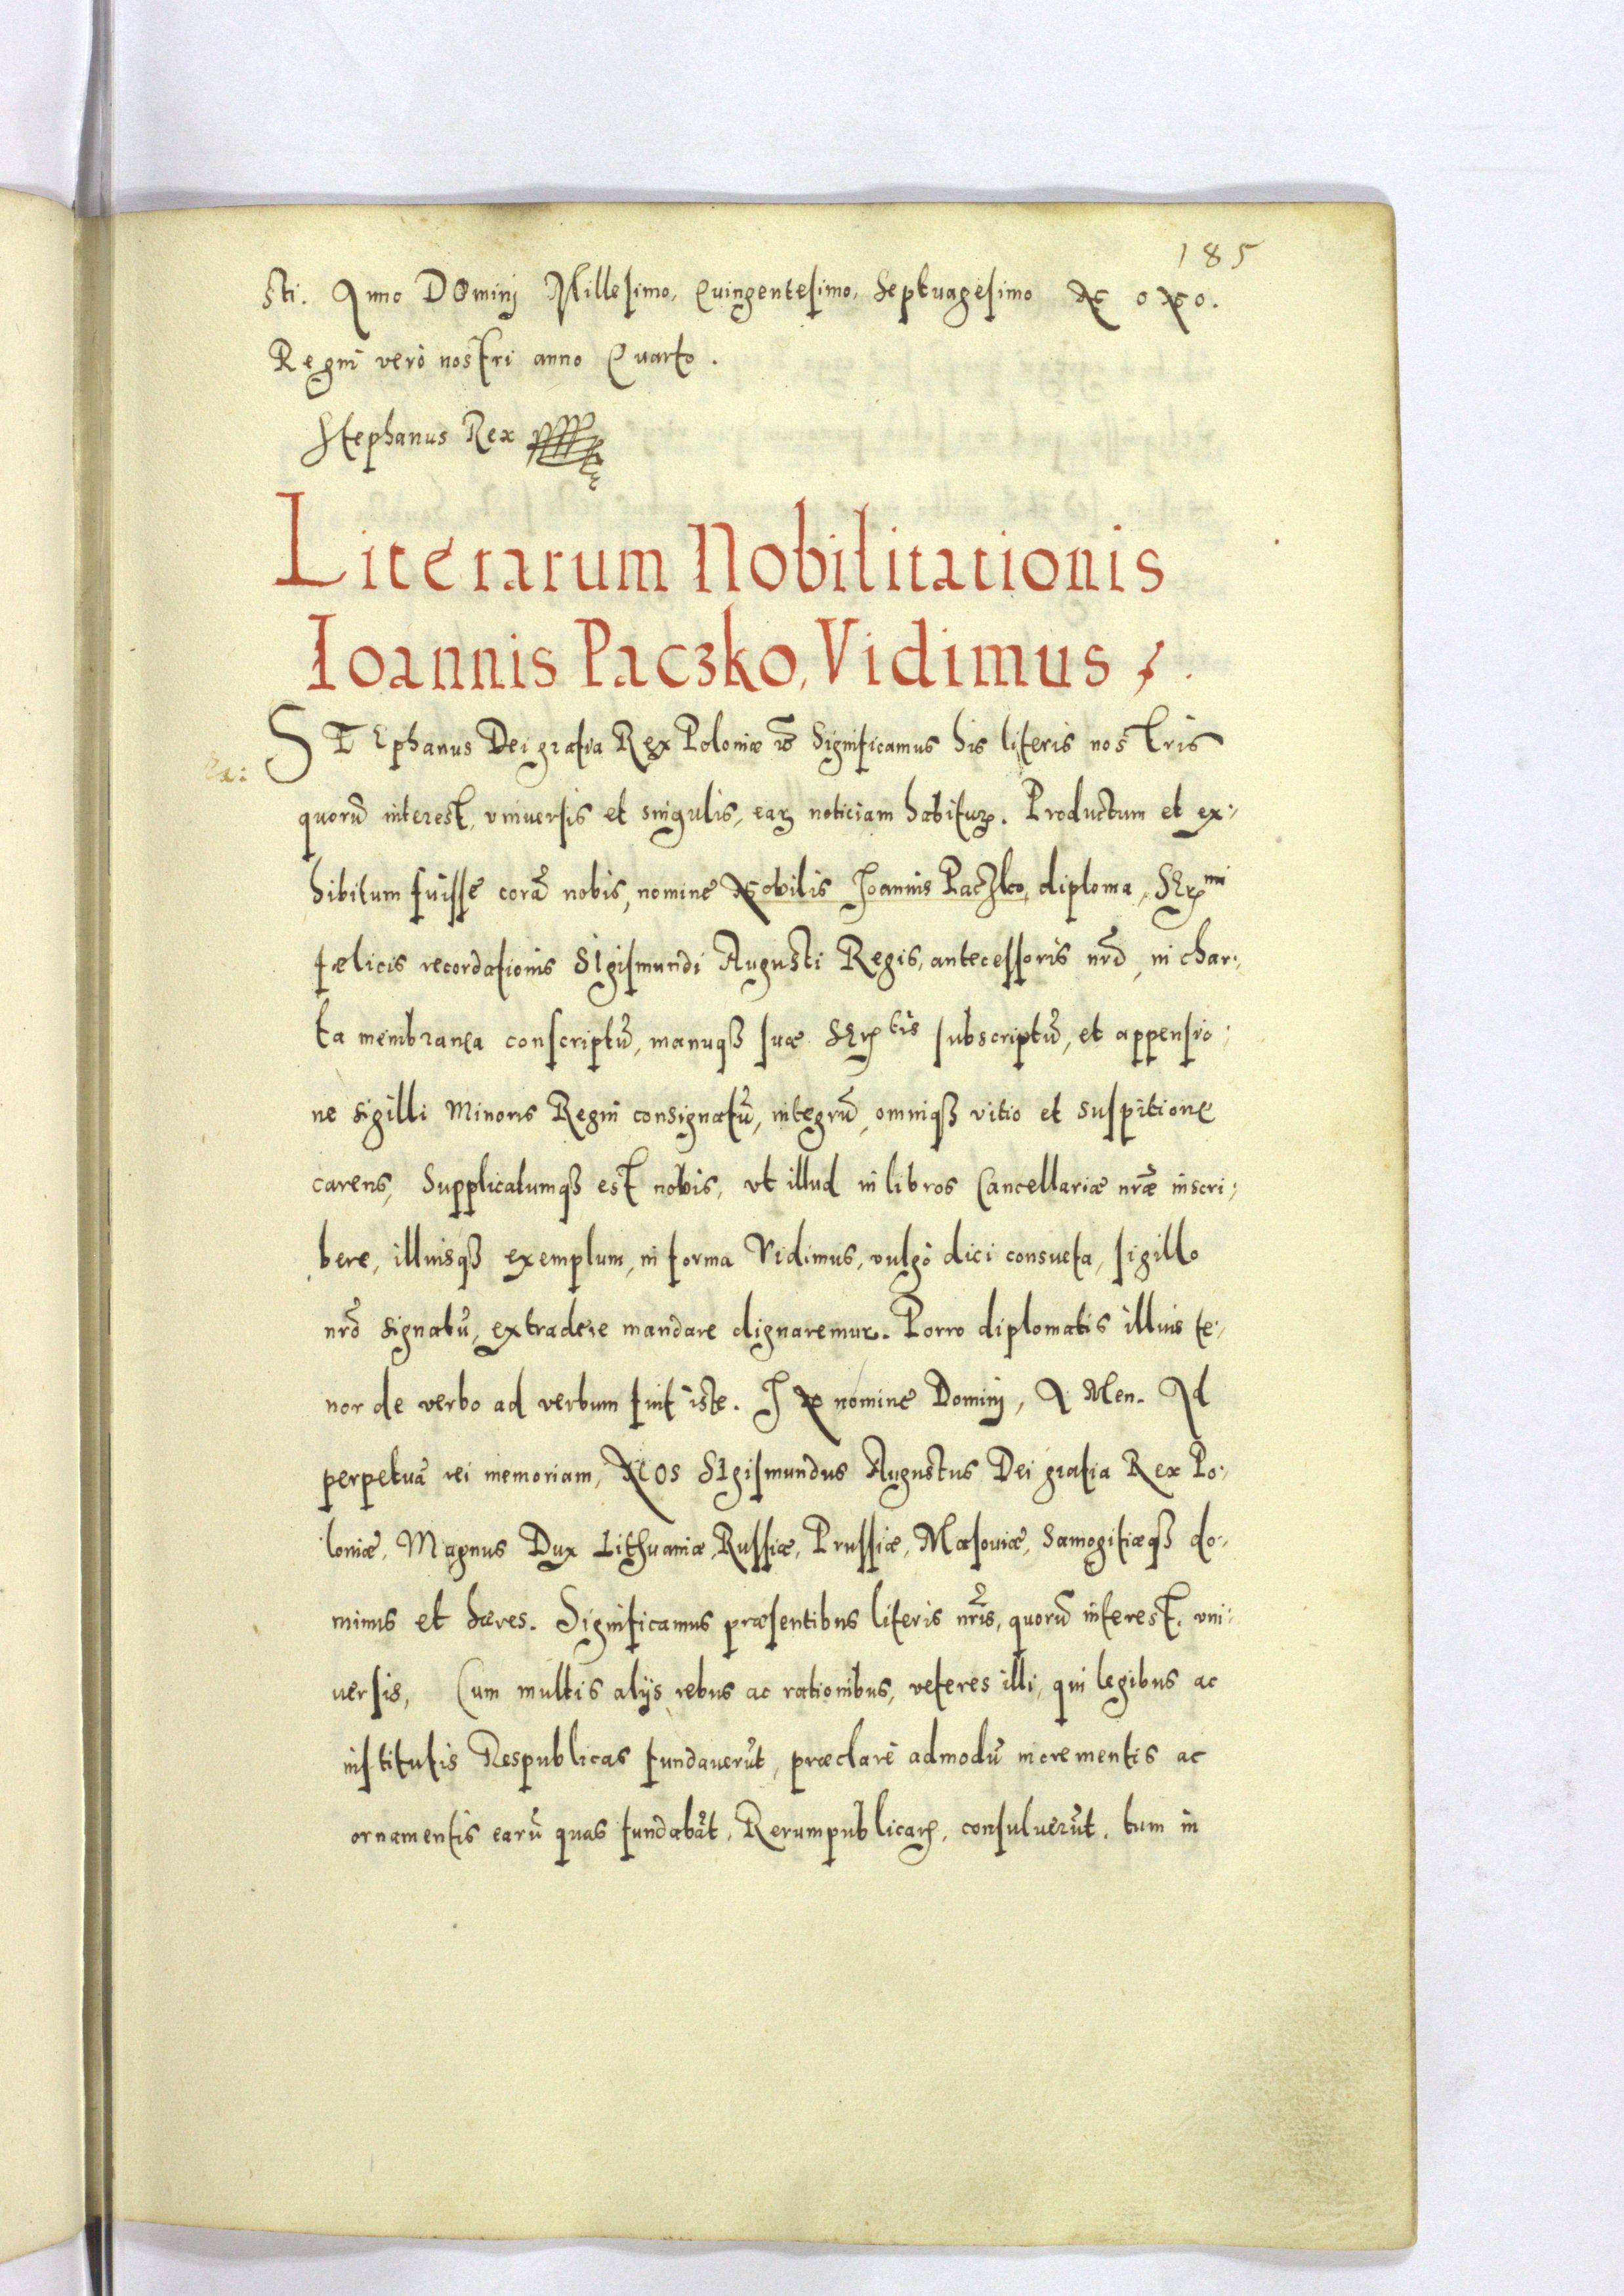 185
sti. Anno DOminj Millesimo, Quingentesimo, Septuagesimo Nono.
Regni verò nostri anno Quarto.
Stephanus Rex
Literarum Nobilitationis
Ioannis Paczko, Vidimus
STEphanus Dei gratia Rex Poloniæ Significamus his literis nostris
quorũ interest, vniuersis et singulis, eaꝝ noticiam habituꝝ. Productum et ex:
hibitum fuisse corã nobis, nomine Nobilis Joannis Paczko, diploma, SEꝝmi
fælicis recordationis SIgismundi Augusti Regis, antecessoris nrĩ, in char:
ta membranea conscriptũ, manuqꝫ suæ SEꝝtis subscriptũ, et appensio:
ne sigilli Minoris Regni consignatũ, integrũ, omniqꝫ vitio et suspitione
carens, Supplicatumqꝫ est nobis, vt illud in libros Cancellariæ nrãe inscri:
bere, illiusqꝫ exemplum, in forma Vidimus, vulgò dici consueta, sigillo
nrõ signatũ, extradere mandare dignaremur. Porro diplomatis illius te:
nor de verbo ad verbum fuit iste. IN nomine Dominj, AMen. Ad
perpetuã rei memoriam, NOS SIgismundus Augustus Dei gratia Rex Po:
loniæ, Magnus Dux Lithuaniæ, Russiæ, Prussiæ, Masouiæ, Samogitiæqꝫ do:
minus et hæres. Significamus præsentibus literis nrĩs, quorũ interest. vni:
uersis, Cum multis alijs rebus ac rationibus, veteres illi, qui legibus ac
institutis Respublicas fundauerũt, præclarè admodũ incrementis ac
ornamentis earũ quas fundabãt, Rerumpublicaꝝ, consuluerũt. tum in